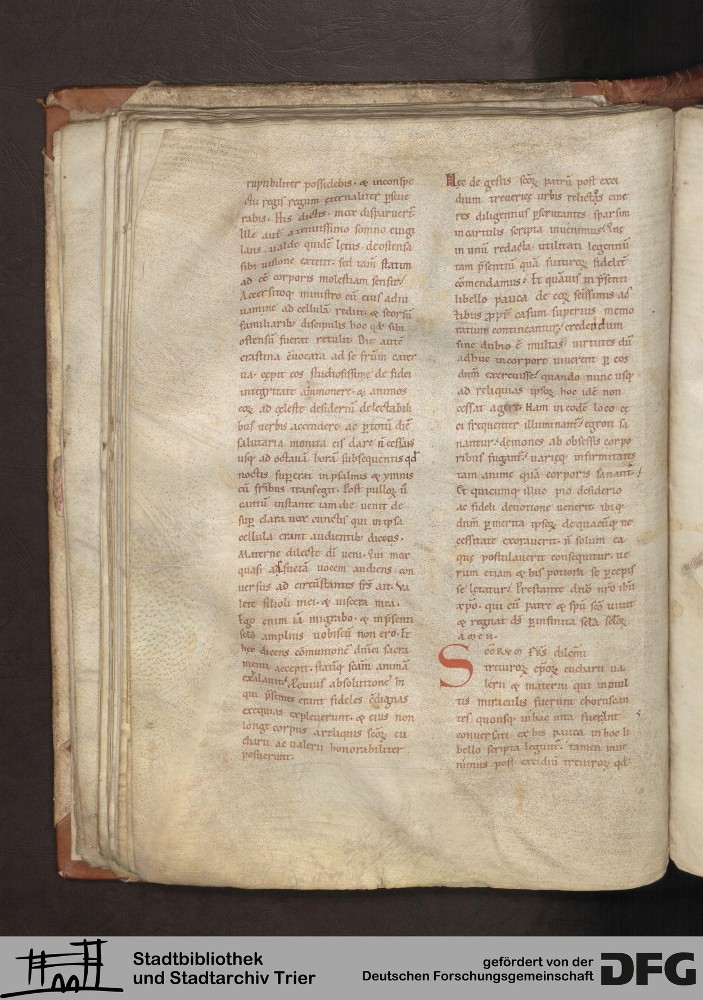 ruptibiliter possidebis · & inconspe
ctu regis regum eternaliter pseue
rabis · His dictis · mox disparuerṫ
Ille aut̄ a leuissimo somno euigi
lans · ualde quidē letus · de ostensa
sibi uisione extitit · sed iam statim
ad eē corporis molestiam sensit ·
Accersitoq; ministro cū eius adiu
uamine ad cellulā rediit · & seorsū
familiarib; discipulis hoc qđ sibi
ostensū fuerat retulit · Die autē
crastina euocata ad se frūm cater
ua · cepit eos studiosissime de fide
integritate āmonere · & animos
eoꝝ ad celeste desideriū delectabili
bus uerbis accendere ac p totū diē
salutaria monita eis dare n̄ cessaīs
usq; ad octauā horā subsequentis qđ
noctis supererat in psalmis & ymnis
cū frībus transegit · Post pulloꝝ ū
cantū instante iam die uenit de
sup clara uox cunctis qui in ipsa
cellula erant audientib; dicens ·
Materne dilecte dī ueni · Qui mox
quasi assuetā uocem audiens con
uersus ad circūstantes frs̄ ait · Va
lete filioli mei · & uiscera mea ·
Ego enim iā migrabo · & in p̄senti
sclo amplius uobiscū non ero · Et
hec dicens cōmunionē dn̄ici sacra
menti accepit · statiq; scām animā
exalauit · Cuius absolutione in
qui p̄sentes erant fideles cōdignas
exequias expleuerunt · & eius non
longe corpus a reliquis scōꝝ eu
charii ac ualerii honorabiliter
posuerunt ·
Hec de gestis scōꝝ patrū post exci
dium treuerice urbis relictos cine
res diligentius pscrutantes sparsim
in cartulis scripta inuenimus · Que
in unū redacta · utilitati legentiū
tam p̄sentiū quā futuroꝝ fidelit̄
cōmendamus · Et quāuis in p̄senti
libello pauca de eoꝝ scissimis ac
tibus ꝓpt̄ casum superius memo
ratum contineantur · credendum
sine dubio ē multas uirtutes dū
adhuc in corpore uiuerent p eos
dn̄m exercuisse · quando nunc usq;
ad reliquias ipsoꝝ hoc idē non
cessat agere · Nam in eodē loco ce
ci frequenter illuminant̄ · egroti sa
nantur · demones ab obsessis corpo
ribus fugant̄ · uarieq; infirmitates
tam anime quā corporis sanant̄ ·
Et quicumq; illuc pio desiderio
ac fideli deuotione uenerit · ibiq;
dn̄m p merita ipsoꝝ de quacūq; ne
cessitate exorauerit · n̄ solum ea
que postulauerit consequitur · ue
rum etiam & his potiora se pcepis
se letatur · Prestante dn̄o nr̄o ihū
xp̄o · qui cū patre & spū scō uiuit
& regnat d̄s p infinita scl̄a scl̄oꝝ
AMEN ·
SCORVM frs̄ dilecti
treuiroꝝ ep̄oꝝ eucharii ua
lerii & materni qui in mul
tis miraculis fuerunt choruscan
tes quousq; in hac uita fuerunt
conuersati · ex his pauca in hoc li
bello scripta legunt̄ · tamen inue
nimus post excidiū treuiroꝝ qđ
Stadtbibliothek
und Stadtarchiv Trier
gefördert von der
Deutschen Forschungsgemeinschaft
DFG